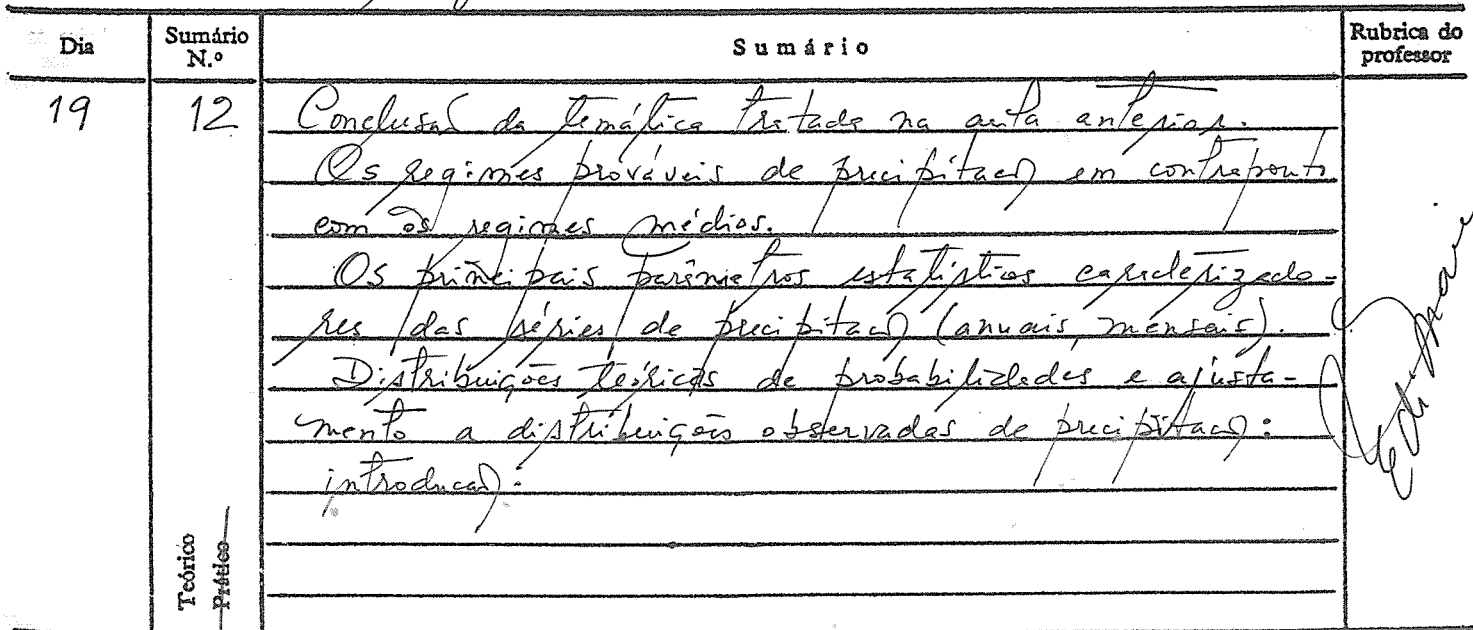 Dia Sumário N.º Sumário Rubrica do professor
19 12 Conclusão da temática tratada na aula anterior.
Os regimes prováveis de precipitação em contraponto
com os regimes médios.
Os principais parâmetros estatísticos caracterizado-
res das séries de precipitação (anuais, mensais).
Distribuições teóricas de probabilidades e ajusta-
mento a distribuições observadas de precipitação:
introdução.
Teórico
Prático